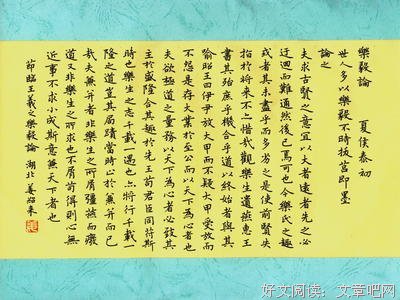 樂毅論 夏侯泰初
世人多以樂毅不時拔莒即墨
論之
夫求古賢之意宜以大者遠者先之必
迂迴而難通然後已焉可也今樂氏之趣
或者其未盡乎而多劣之是使前賢失
指於將來不亦惜哉觀樂生遺燕惠王
書其殆庶乎機合乎道以終始者與其
喻昭王曰伊尹放大甲而不疑大甲受放而
不怨是存大業於至公而以天下為心者也
夫欲極道之量務以天下為心者必致其
主於盛隆合其趣於先王苟君臣同符斯
時也樂生之志千載一遇也亦將行千載一
隆之道豈其局蹟當時止於兼并而已
哉夫兼并者非樂生之所屑彊燕而廢
道又非樂生之所求也不屑苟得則心無
近事不求小成斯意兼天下者也
節臨王羲之樂毅論 湖北 姜紹來
好文阅读：文章吧网